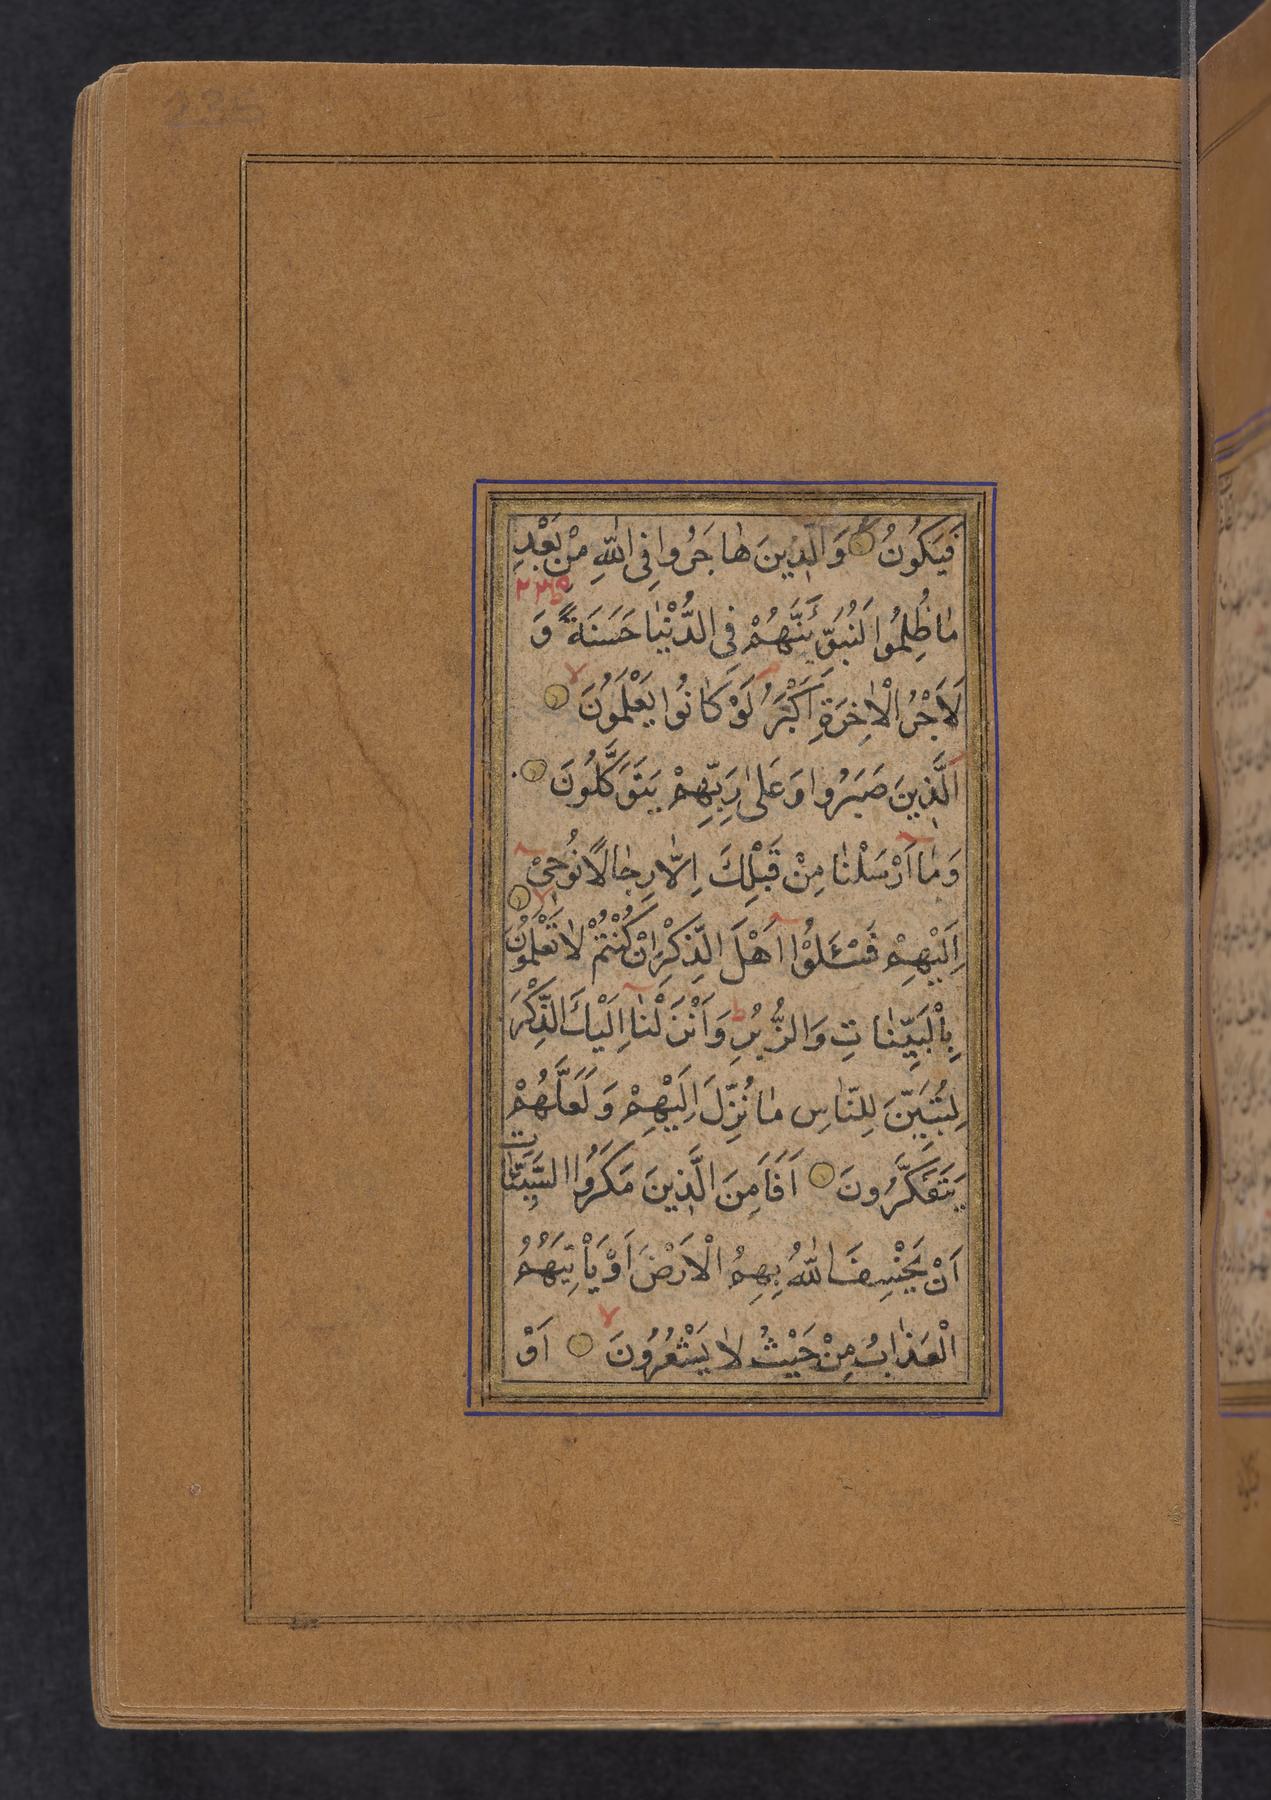 فَيَكُونُ وَالَّذِينَ هٰاجَرُوا فِی اللّٰهِ مِنْ بَعْدِ
مٰا ظُلِمُوا لَنُبَوِّئَنَّهُمْ فِی الدُّنْيٰا حَسَنَةً وَ
لَاَجْرُ الْاٰخِرَةِ اَكْبَرُ لَوْ كٰانُوا يَعْلَمُونَ
اَلَّذِينَ صَبَرُوا وَ عَلیٰ رَبِّهِمْ يَتَوَكَّلُونَ
وَ مٰا اَرْسَلْنٰا مِنْ قَبْلِكَ اِلّٰا رِجٰالًا نُوحِیْ
اِلَيْهِمْ فَسْـَٔلُوْا اَهْلَ الذِّكْرِ اِنْ كُنْتُمْ لٰا تَعْلَمُونَ
بِالْبَيِّنٰاتِ وَالزُّبُرِ وَ اَنْزَلْنٰا اِلَيْكَ الذِّكْرَ
لِتُبَيِّنَ لِلنّٰاسِ مٰا نُزِّلَ اِلَيْهِمْ وَ لَعَلَّهُمْ
يَتَفَكَّرُونَ اَفَاَمِنَ الَّذِينَ مَكَرُوا السَّيِّئٰاتِ
اَنْ يَخْسِفَ اللّٰهُ بِهِمُ الْاَرْضَ اَوْ يَاْتِيَهُمُ
الْعَذٰابُ مِنْ حَيْثُ لٰا يَشْعُرُونَ اَوْ